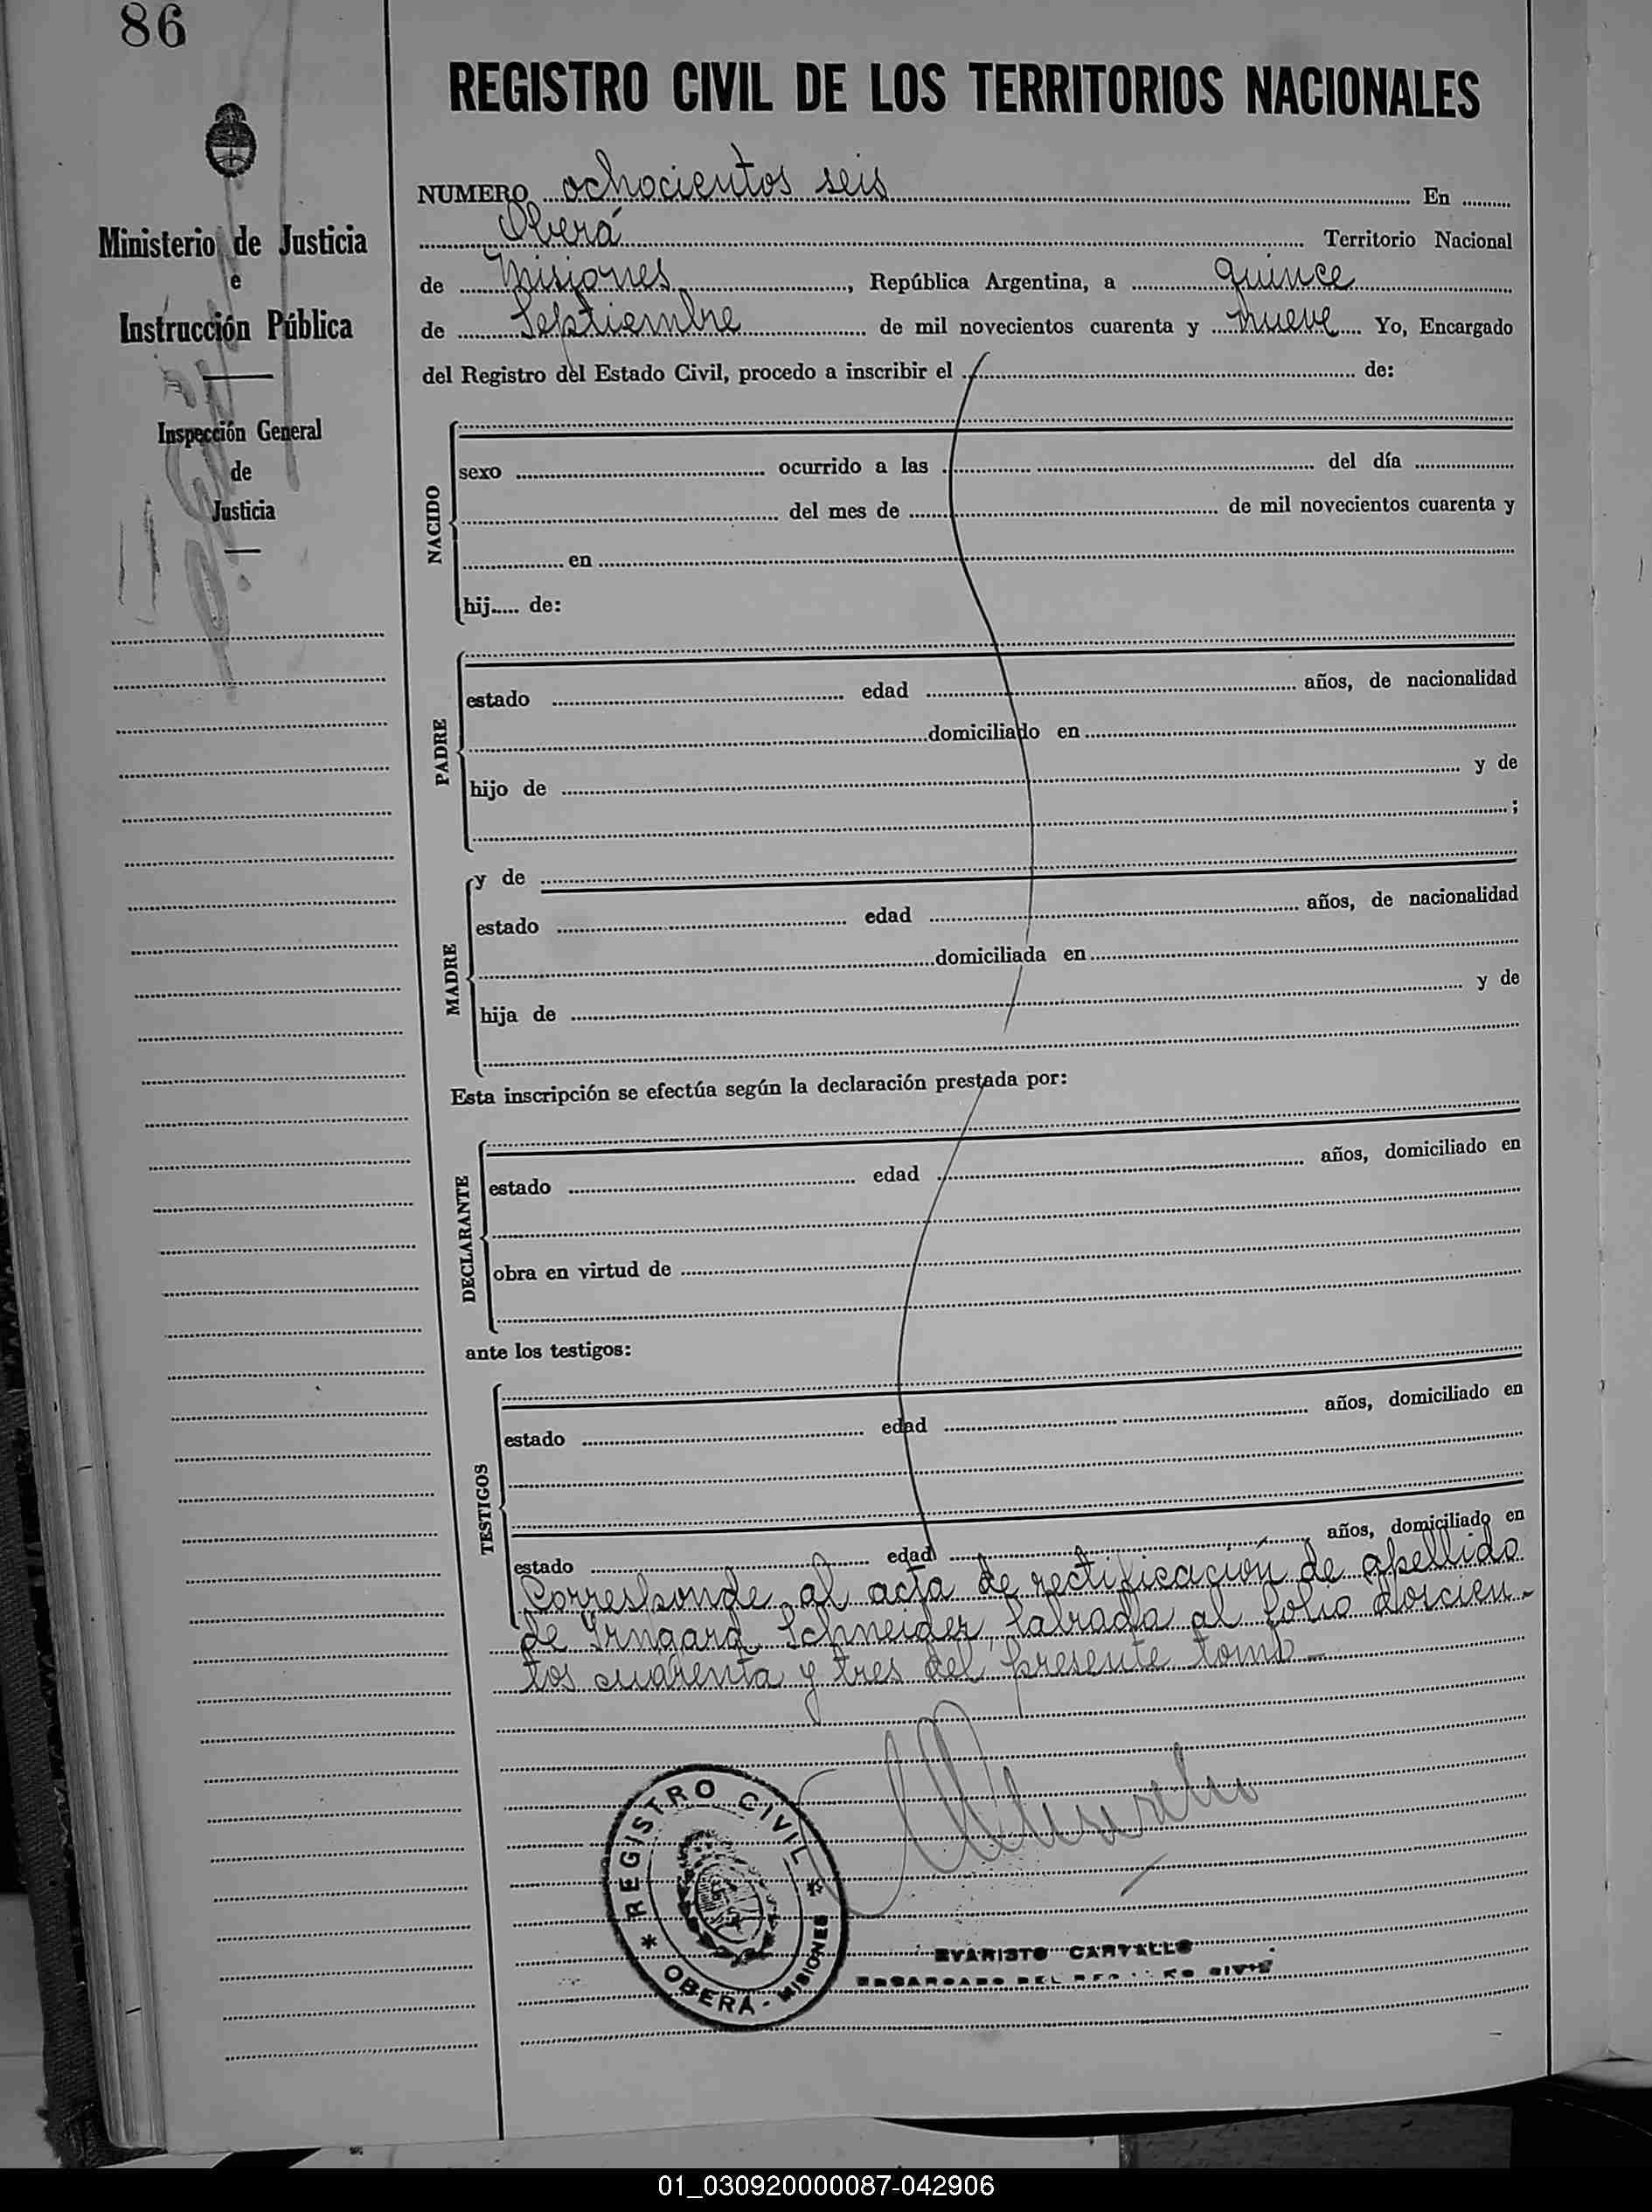 86
REGISTRO CIVIL DE LOS TERRITORIOS NACIONALES
Ministerio de Justicia
e
Instrucción Pública
Inspección General
de
Justicia
NUMERO ochocientos seis En
Oberá Territorio Nacional
de Misiones, República Argentina, a quince
de Septiembre de mil novecientos cuarenta y nueve Yo, Encargado
del Registro del Estado Civil, procedo a inscribir el de:
NACIDO
sexo ocurrido a las del día
del mes de de mil novecientos cuarenta y
en
hij..... de:
PADRE
estado edad años, de nacionalidad
domiciliado en
hijo de y de
;
MADRE
y de
estado edad años, de nacionalidad
domiciliada en
hija de y de
Esta inscripción se efectúa según la declaración prestada por:
DECLARANTE
estado edad años, domiciliado en
obra en virtud de
ante los testigos:
TESTIGOS
estado edad años, domiciliado en
estado edad años, domiciliado en
Corresponde al acta de rectificación de apellido
de Irngard Schneider, labrada al folio doscien-
tos cuarenta y tres del presente tomo-
REGISTRO CIVIL
* OBERÁ - MISIONES *
EVARISTO CARVALLO
ENCARGADO DEL REGISTRO CIVIL
01_030920000087-042906